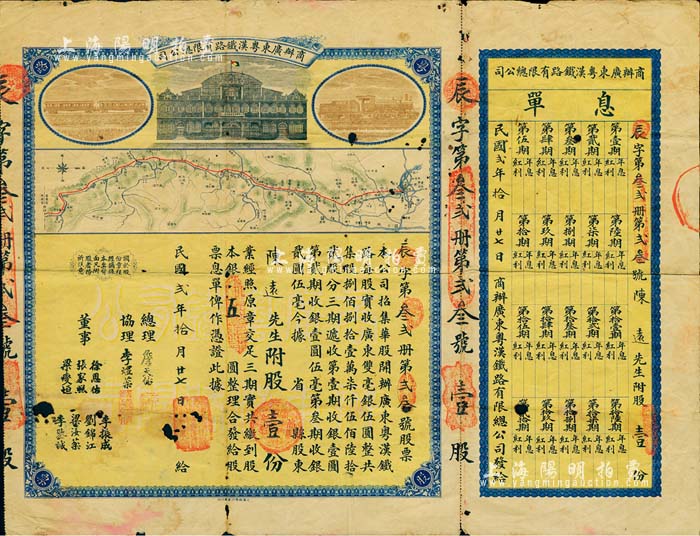 司公總限有路鐵漢粵東廣辦商
辰字第叁弍册第弍叁號股票
本公司招集華股開辦廣東粵漢鐵
路每股實收廣東雙毫銀伍圓整共
集股捌佰捌拾壹萬柒仟伍佰陸拾
弍股分三期遞收第壹期收銀壹圓
第貳期收銀壹圓伍毫第叁期收銀
貳圓伍毫今據 省 縣股東
陳遠先生附股壹份
業經照原章交足三期實共繳到股
本銀 伍 圓整理合發給股
票息單俾作憑證此據
民國弍年拾月廿七日 給
總理 詹天佑
協理 李煜棻
董事
徐應佑
張家熙
梁燮垣
李振成
劉錦江
李鑑誠
辰字第叁弍册第弍叁號壹股
辰字第叁弍册第弍叁號壹股
司公總限有路鐵漢粵東廣辦商
單息
辰字第叁弍册第弍叁號陳遠先生附股壹份
第壹期年息紅利
第貳期年息紅利
第叁期年息紅利
第肆期年息紅利
第伍期年息紅利
第陸期年息紅利
第柒期年息紅利
第捌期年息紅利
第玖期年息紅利
第拾期年息紅利
第拾壹期年息紅利
第拾貳期年息紅利
第拾叁期年息紅利
第拾肆期年息紅利
第拾伍期年息紅利
民國弍年拾月廿七日 商辦廣東粵漢鐵路有限總公司發給
上海陽明拍賣
www.yangmingauction.com
上海陽明拍賣
www.yangmingauction.com